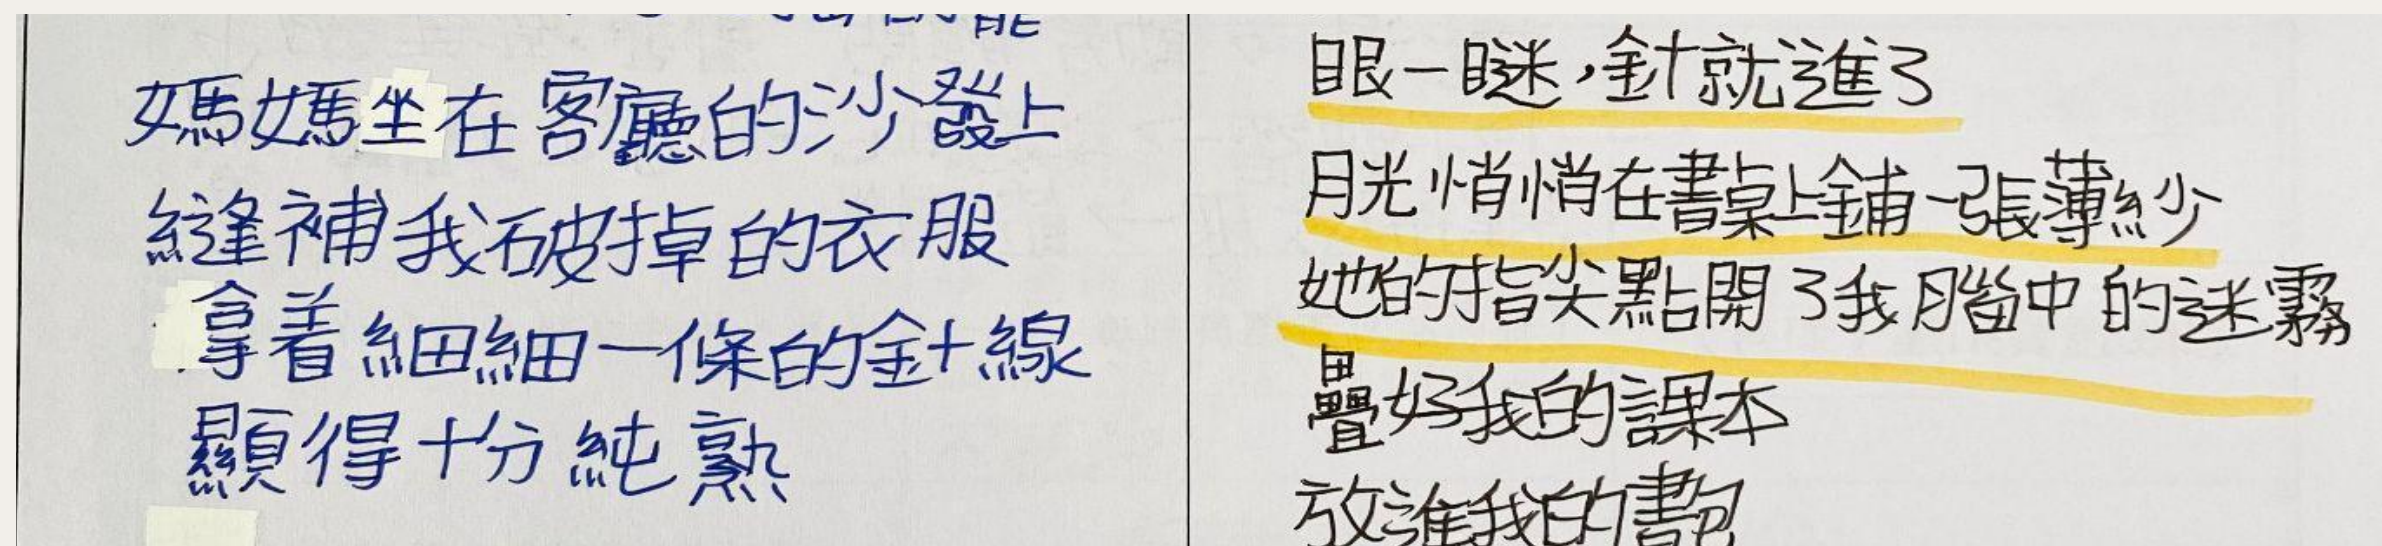 媽媽坐在客廳的沙發上
縫補我破掉的衣服
拿着細細一條的針線
顯得十分純熟
眼一瞇，針就進了
月光悄悄在書桌上鋪一張薄紗
她的指尖點開了我腦中的迷霧
疊好我的課本
放進我的書包